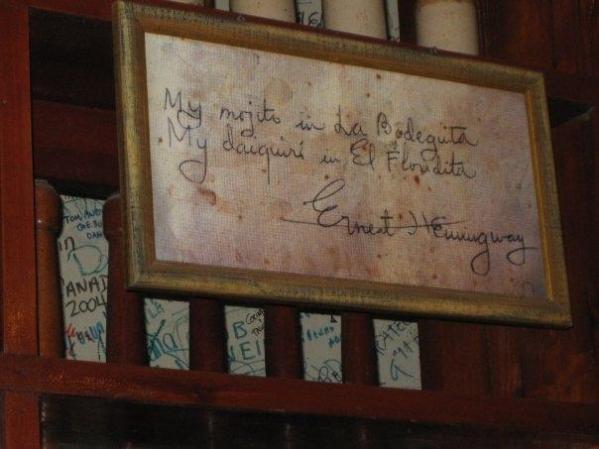 My mojito in La Bodeguita
My daiquirí in El Floridita
Ernest Hemingway
TOM AND
ANAD
2004